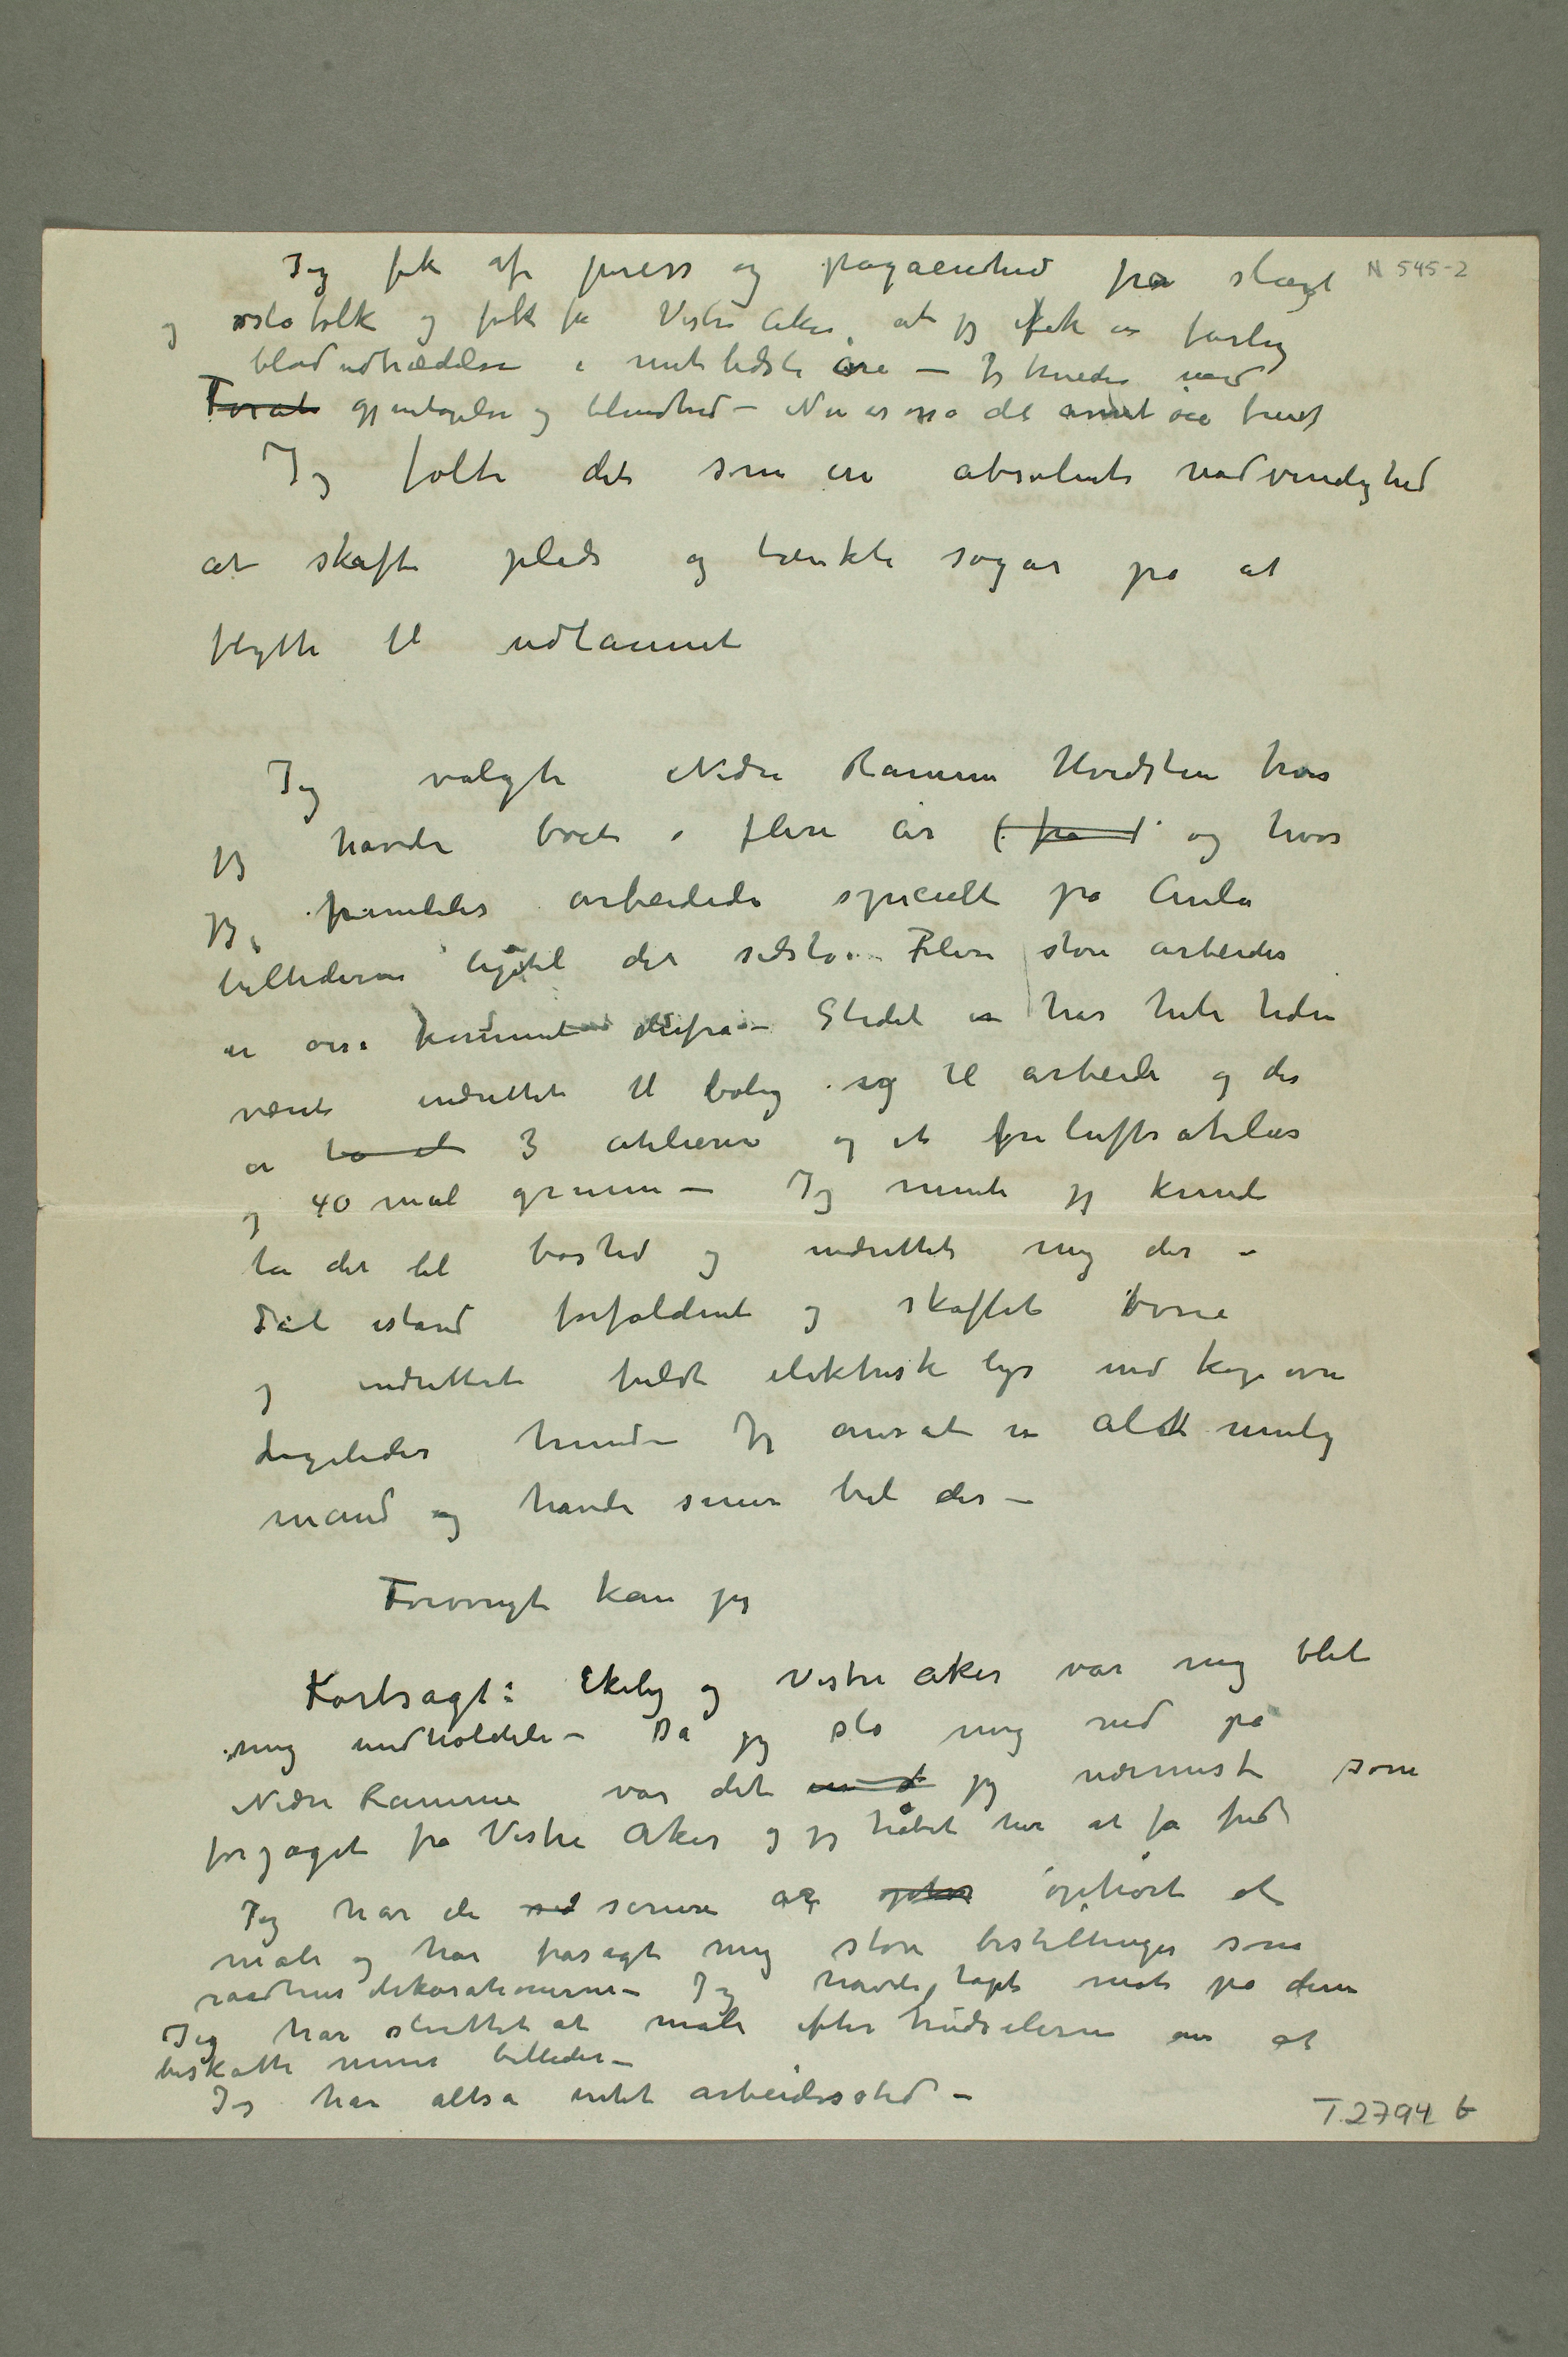 Jeg fik af press og pågåenhed fra slægt N 545-2
og oslofolk og folk fra Vestre Aker, at jeg fik en farlig
blodudtrædelse i mit bedste øie – Jeg trues med
Forat gjentagelse og blindhed – Nu er også det annet øie truet
Jeg følte det som en absolut nødvendighed
at skifte plads og tænkte sogar på at
flytte til udlannet
Jeg valgte Nedre Ramme Hvidsten hvor
jeg havde boet i flere år (fra) og hvor
jeg fremdeles arbeidede specielt på Aula
billederne ligetil det sidste. Flere store arbeider
er også kommet derifra – Stedet er har hele tiden
været indrettet til bolig og til arbeide og der
er to al 3 atelierer og et friluftsatelier
og 40 mål grunn – Jeg mente jeg kunde
ta det til bosted og indrettet mig der –
Sat istand forfaldent og skaffet ovne
og indrettet fuldt elektrisk lys med kogeovn
Ligeledes hund – Jeg ansat en alt mulig
mand og havde senere bil der –
Forøvrigt kan jeg
Kortsagt: Ekely og Vestre Aker var mig blet
mig uudholdelig – Da jeg slo mig ned på
Nedre Ramme var det jeg nærmest som
forjaget fra Vestre Aker og jeg håbet her at få fred
Jeg har de senere år ophør ophørt at
male og har frasagt mig store bestillinger som
raadhusdekorationerne – Jeg havde tapt mot på dem
Jeg har sluttet at male efter trudselerne om at
beskatte mine billeder –
Jeg har altså intet arbeidssted –
T 2794 b